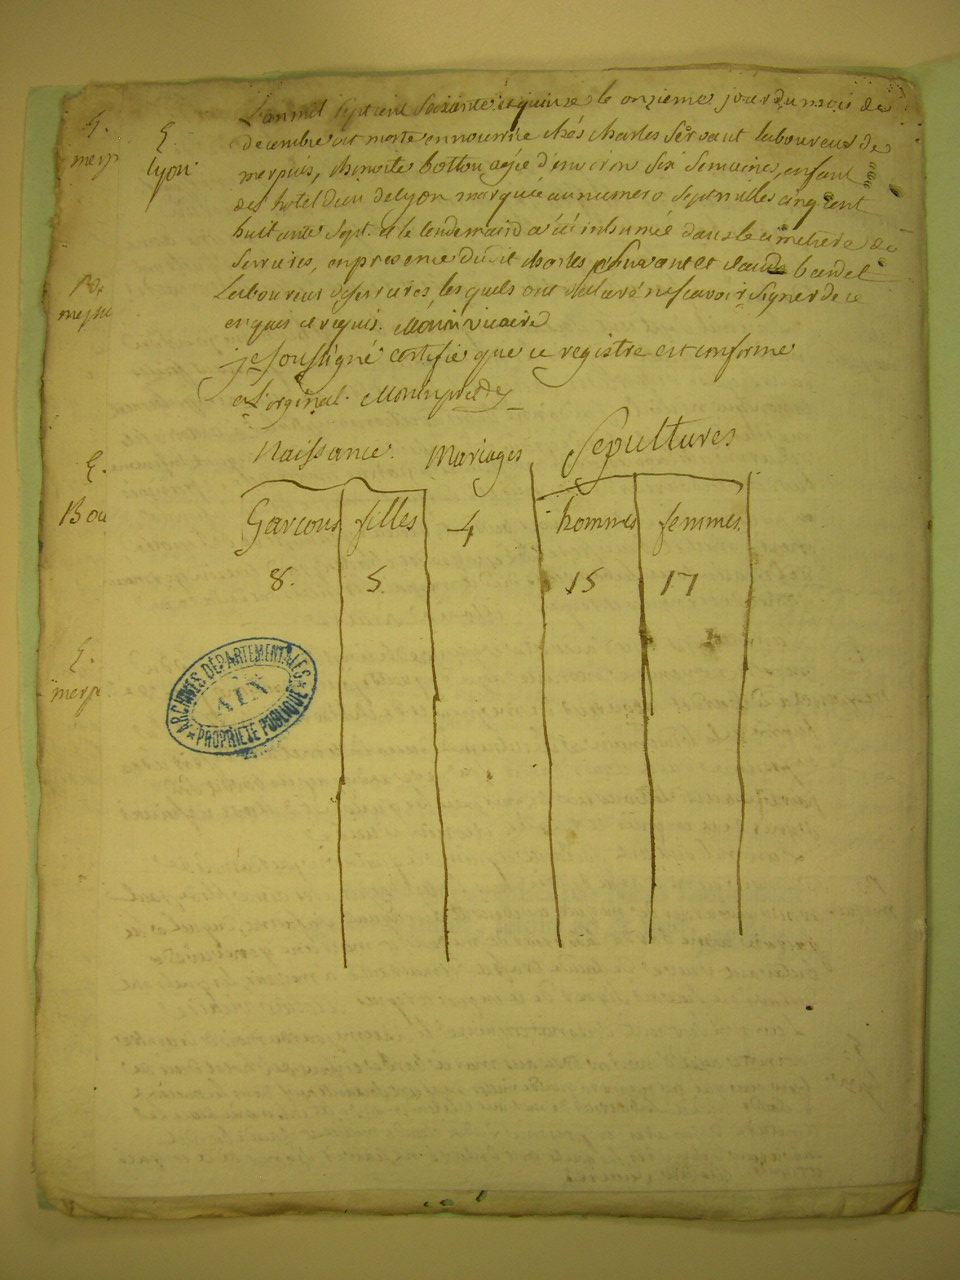 E.
merp
E
Lyon
L'an mil sept cent soixante et quinze le onzieme jour du mois de
decembre est morte en nourrice chés charles Servant laboureur de
merpuis, benoite bottou agée d'environ six semaines, enfant
de l'hotel Dieu de Lyon marquée au numero sept milles cinq cent
huitante sept. et le lendemain a été inhumée dans le cimetiere de
Serrieres, en presence dudit charles Servant et claude bardet
Laboureur de serrieres, lesquels ont declaré ne scavoir signer de ce
enquis et requis. Monin vicaire
je soussigné certifie que ce registre est conforme
a l'orginal. Monin
Naissance. Mariages Sepultures
Garcons filles 4 hommes femmes
8. 5. 15 17
E.
Bou
E.
merp
ARCHIVES DÉPARTEMENTALES
AIN
PROPRIÉTÉ PUBLIQUE